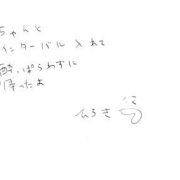 ちゃんと
インターバル入れて
酔っぱらわずに
帰ったよ
ひろき